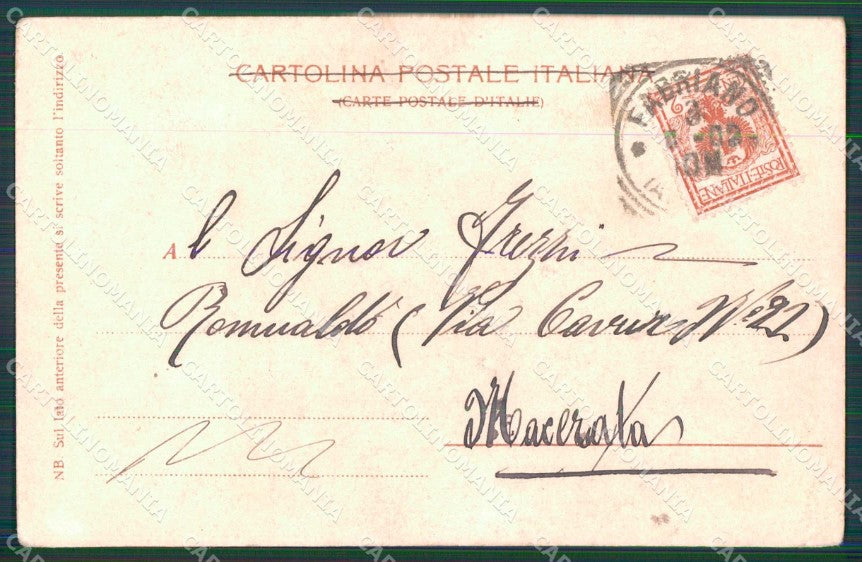 CARTOLINA POSTALE ITALIANA
(CARTE POSTALE D'ITALIE)
FABRIANO
POSTE ITALIANE
Al Signor Frezzi
Romualdo (Via Cavour Nº 22)
Macerata
NB. Sul lato anteriore della presente si scrive soltanto l'indirizzo
CARTOLINOMANIA